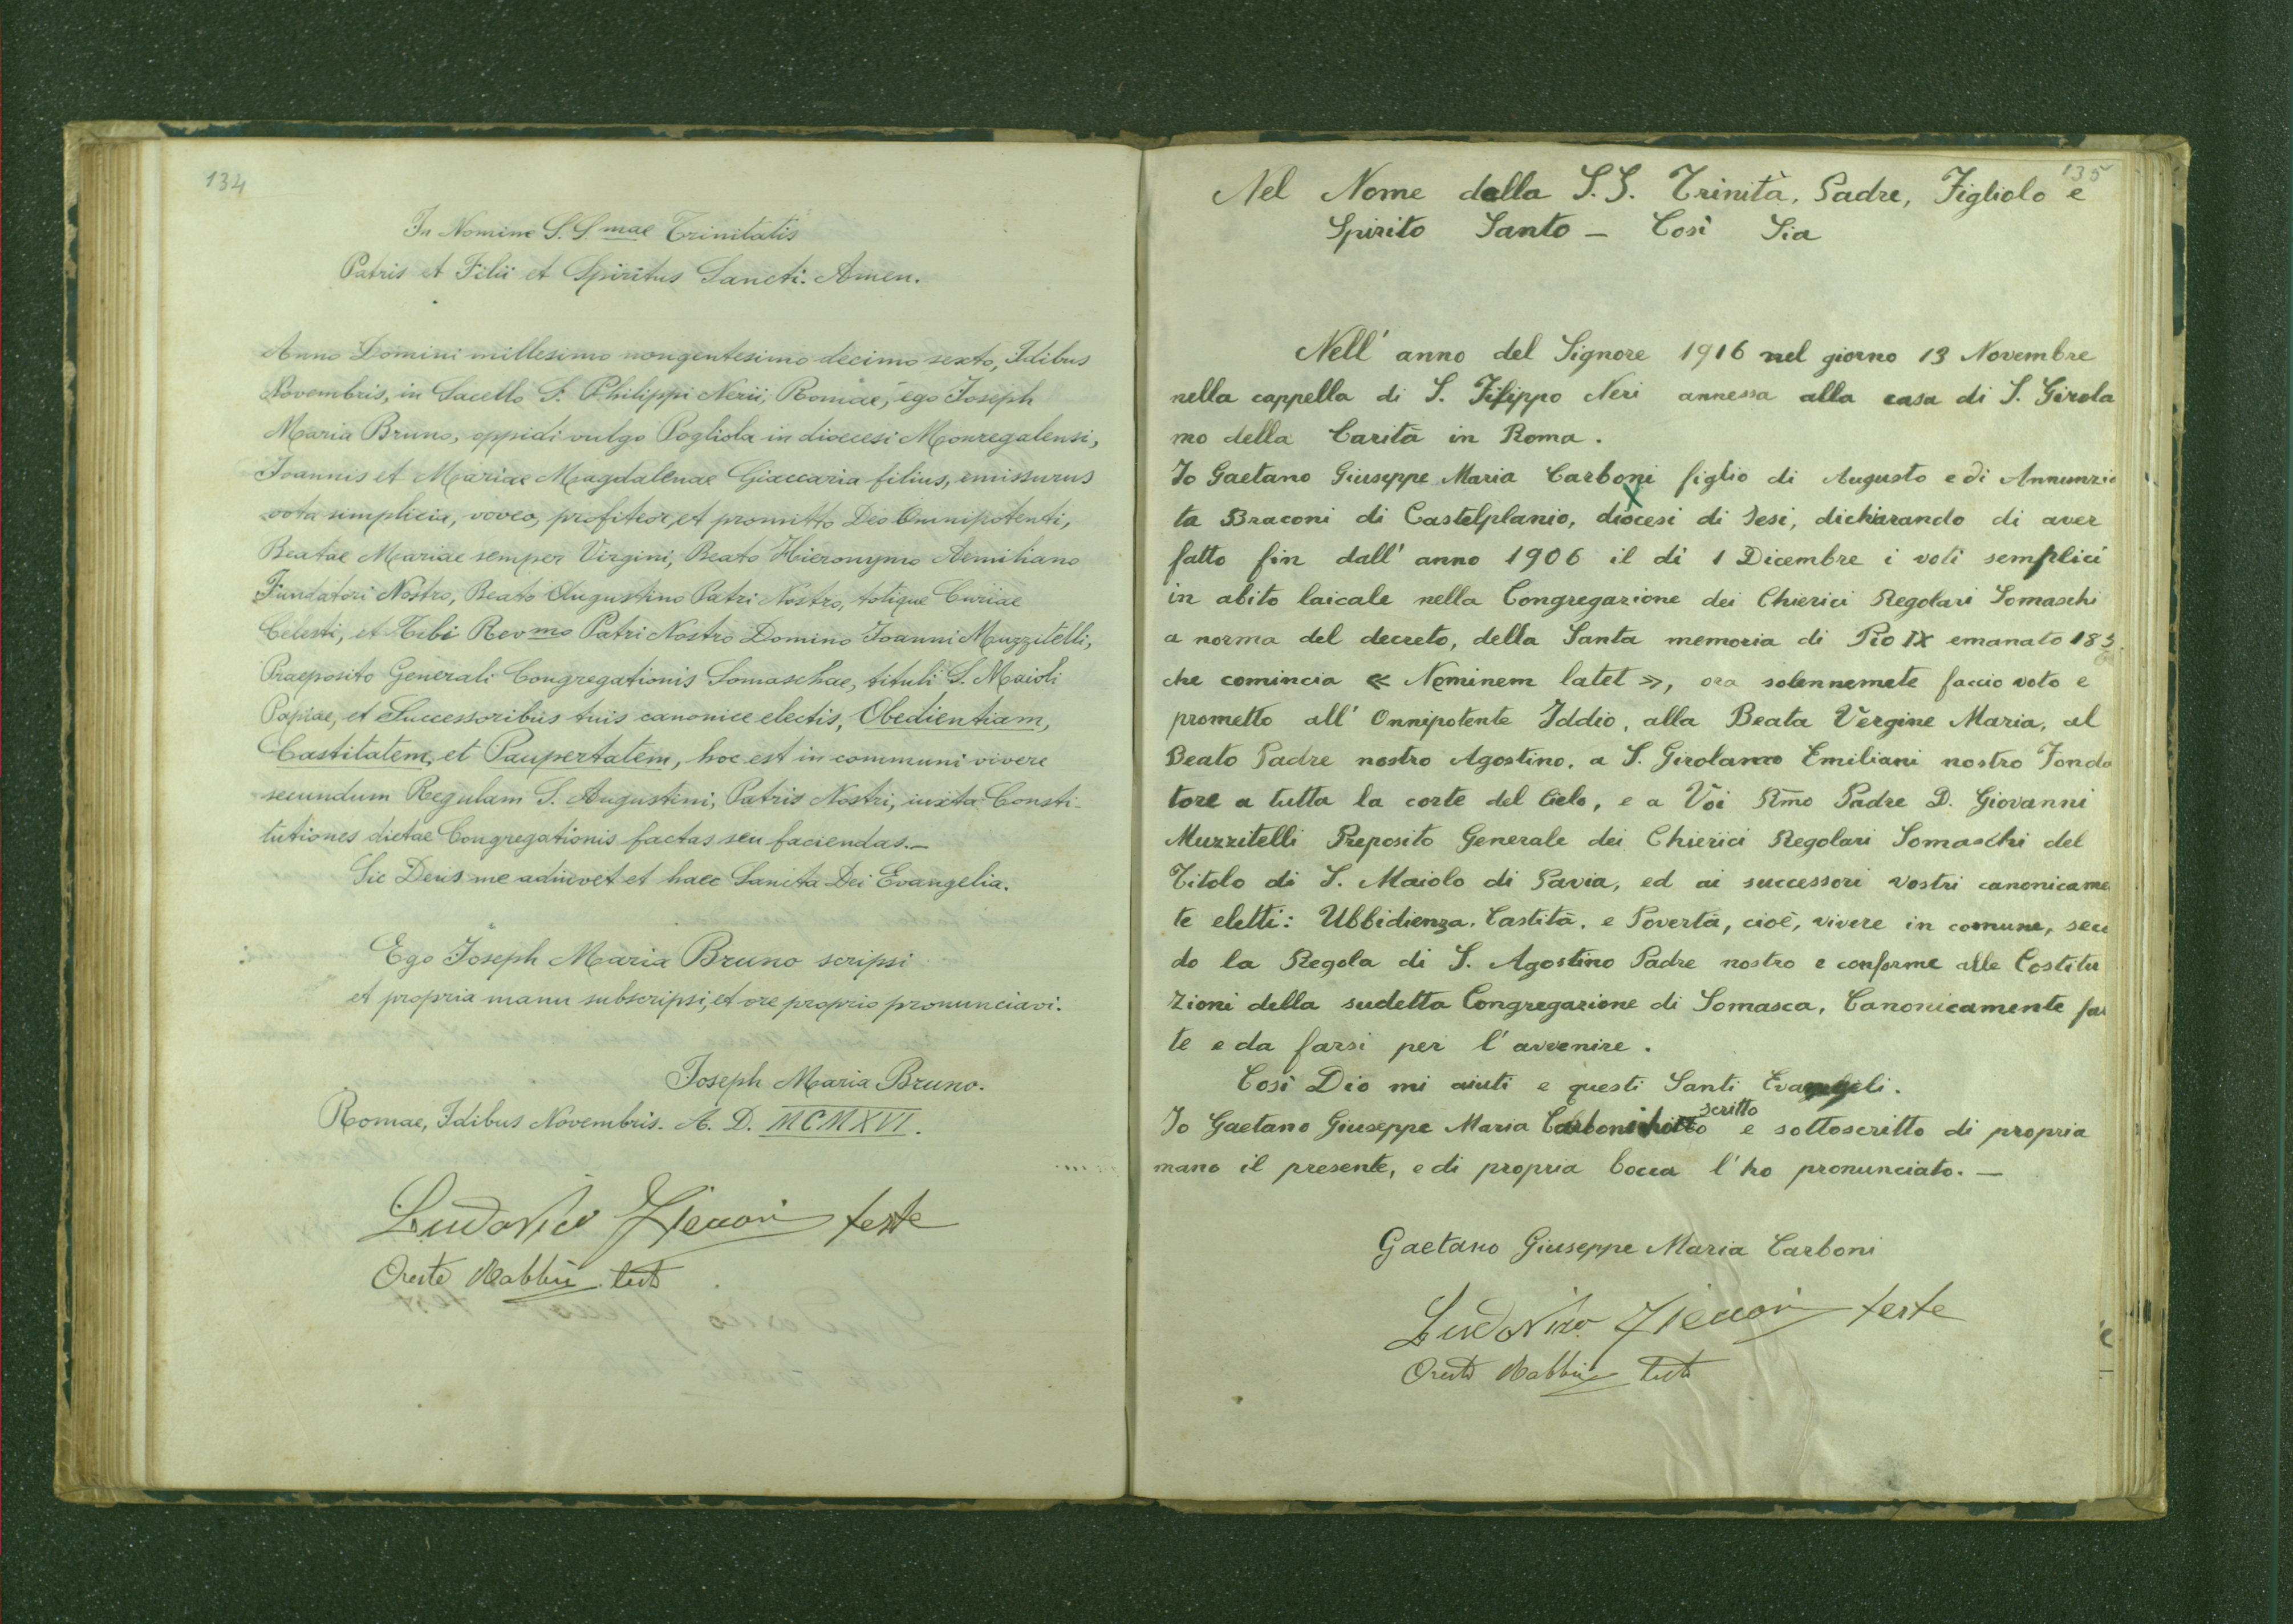 134
In Nomine S. S. mae Trinitatis
Patris et Filii et Spiritus Sancti. Amen.
Anno Domini millesimo nongentesimo decimo sexto, Idibus
Novembris, in Sacello S. Philippi Nerii, Romae, ego Joseph
Maria Bruno, oppidi vulgo Pogliola in dioecesi Monregalensi,
Joannis et Mariae Magdalenae Giaccaria filius, emissurus
vota simplicia, voveo, profiteor, et promitto Deo Omnipotenti,
Beatae Mariae semper Virgini, Beato Hieronymo Aemiliano
Fundatori Nostro, Beato Augustino Patri Nostro, totique Curiae
Celesti, et Tibi Revmo Patri Nostro Domino Joanni Muzzitelli,
Praeposito Generali Congregationis Somaschae, tituli S. Maioli
Papiae, et Successoribus tuis canonice electis, Obedientiam,
Castitatem, et Paupertatem, hoc est in communi vivere
secundum Regulam S. Augustini, Patris Nostri, iuxta Consti-
tutiones dictae Congregationis factas seu faciendas.—
Sic Deus me adiuvet et haec Sancta Dei Evangelia.
Ego Joseph Maria Bruno scripsi
et propria manu subscripsi, et ore proprio pronunciavi.
Joseph Maria Bruno.
Romae, Idibus Novembris. A. D. MCMXVI.
Ludovico teste
Oreste teste
135
Nel Nome della S. S. Trinità, Padre, Figliolo e
Spirito Santo — Così Sia
Nell' anno del Signore 1916 nel giorno 13 Novembre
nella cappella di S. Filippo Neri annessa alla casa di S. Girola
mo della Carità in Roma.
Io Gaetano Giuseppe Maria Carboni figlio di Augusto e di Annunzia
ta Braconi di Castelplanio, diocesi di Jesi, dichiarando di aver
fatto fin dall' anno 1906 il dì 1 Dicembre i voti semplici
in abito laicale nella Congregazione dei Chierici Regolari Somaschi
a norma del decreto, della Santa memoria di Pio IX emanato 185
che comincia « Neminem latet », ora solennemete faccio voto e
prometto all' Onnipotente Iddio, alla Beata Vergine Maria, al
Beato Padre nostro Agostino, a S. Girolamo Emiliani nostro Fonda
tore a tutta la corte del Cielo, e a Voi Rmo Padre D. Giovanni
Muzzitelli Preposito Generale dei Chierici Regolari Somaschi del
Titolo di S. Maiolo di Pavia, ed ai successori vostri canonicame
te eletti: Ubbidienza, Castità, e Povertà, cioè, vivere in comune, secu
do la Regola di S. Agostino Padre nostro e conforme alle Costitu
zioni della sudetta Congregazione di Somasca, Canonicamente fat
te e da farsi per l' avvenire.
Così Dio mi aiuti e questi Santi Evangeli.
Io Gaetano Giuseppe Maria Carboni scritto e sottoscritto di propria
mano il presente, e di propria bocca l' ho pronunciato. —
Gaetano Giuseppe Maria Carboni
Ludovico teste
Oreste teste